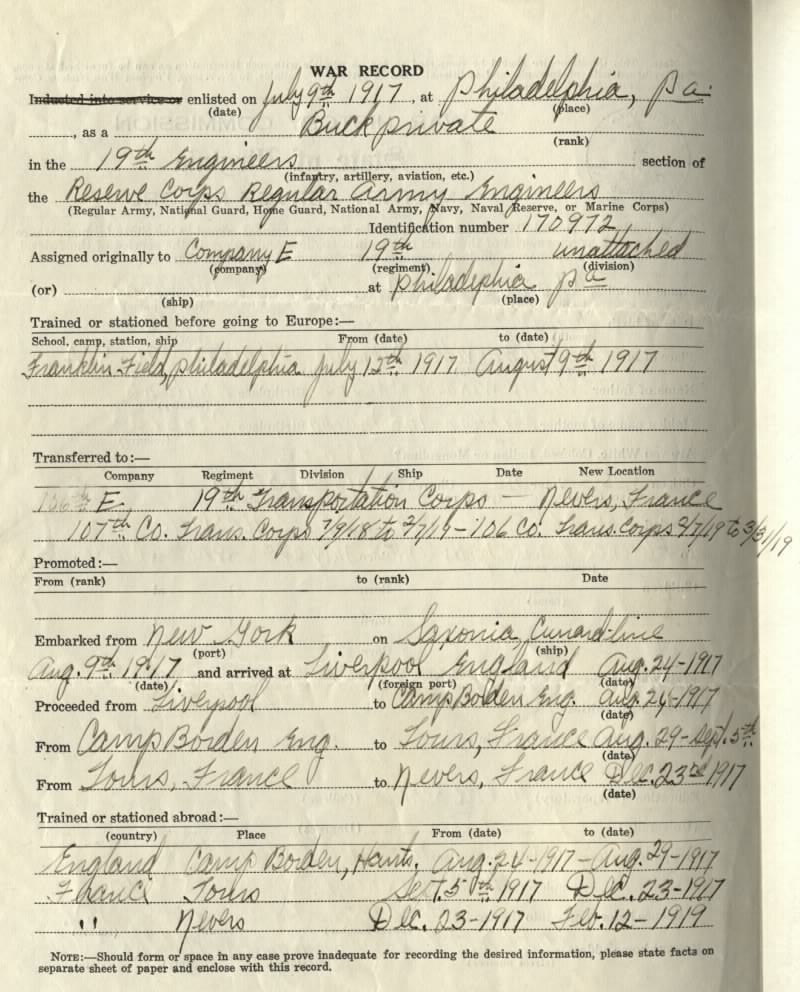 WAR RECORD
Inducted into service or enlisted on July 9th 1917, at Philadelphia, Pa.
(date) (place)
, as a Buck private
(rank)
in the 19th Engineers section of
(infantry, artillery, aviation, etc.)
the Reserve Corps Regular Army Engineers
(Regular Army, National Guard, Home Guard, National Army, Navy, Naval Reserve, or Marine Corps)
Identification number 170972
Assigned originally to Company E 19th unattached
(company) (regiment). (division)
(or) at Philadelphia Pa
(ship) (place)
Trained or stationed before going to Europe:—
School, camp, station, ship From (date) to (date)
Franklin Field, Philadelphia July 12th 1917 August 9th 1917
Transferred to:—
Company Regiment Division Ship Date New Location
E, 19th Transportation Corps — Nevers, France
107th Co. Trans. Corps 7/9/18 to 2/7/19 - 106 Co. Trans. Corps 2/7/19 to 3/31/19
Promoted:—
From (rank) to (rank) Date
Embarked from New York on Saxonia, Cunard-line
(port) (ship)
Aug. 9th 1917 and arrived at Liverpool England Aug. 24-1917
(date) (foreign port) (date)
Proceeded from Liverpool to Camp Borden Eng. Aug. 24-1917
(date)
From Camp Borden Eng. to Tours, France Aug. 29-Sept. 5th
(date)
From Tours, France to Nevers, France Dec. 23rd 1917
(date)
Trained or stationed abroad:—
(country) Place From (date) to (date)
England Camp Borden, Hants. Aug. 24-1917-Aug. 29-1917
France Tours Sept. 5th 1917 Dec. 23-1917
" Nevers Dec. 23-1917 Feb. 12-1919
NOTE:—Should form or space in any case prove inadequate for recording the desired information, please state facts on
separate sheet of paper and enclose with this record.